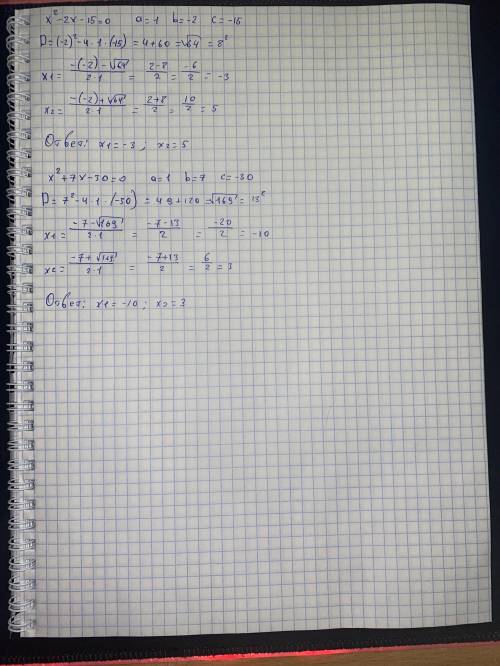 x² - 2x - 15 = 0 a = 1 b = -2 c = -15
D = (-2)² - 4 · 1 · (-15) = 4 + 60 = √64 = 8²
x1 = (-(-2) - √64) / (2 · 1) = (2 - 8) / 2 = -6 / 2 = -3
x2 = (-(-2) + √64) / (2 · 1) = (2 + 8) / 2 = 10 / 2 = 5
Ответ: x1 = -3 ; x2 = 5
x² + 7x - 30 = 0 a = 1 b = 7 c = -30
D = 7² - 4 · 1 · (-30) = 49 + 120 = √169 = 13²
x1 = (-7 - √169) / (2 · 1) = (-7 - 13) / 2 = -20 / 2 = -10
x2 = (-7 + √169) / (2 · 1) = (-7 + 13) / 2 = 6 / 2 = 3
Ответ: x1 = -10 ; x2 = 3